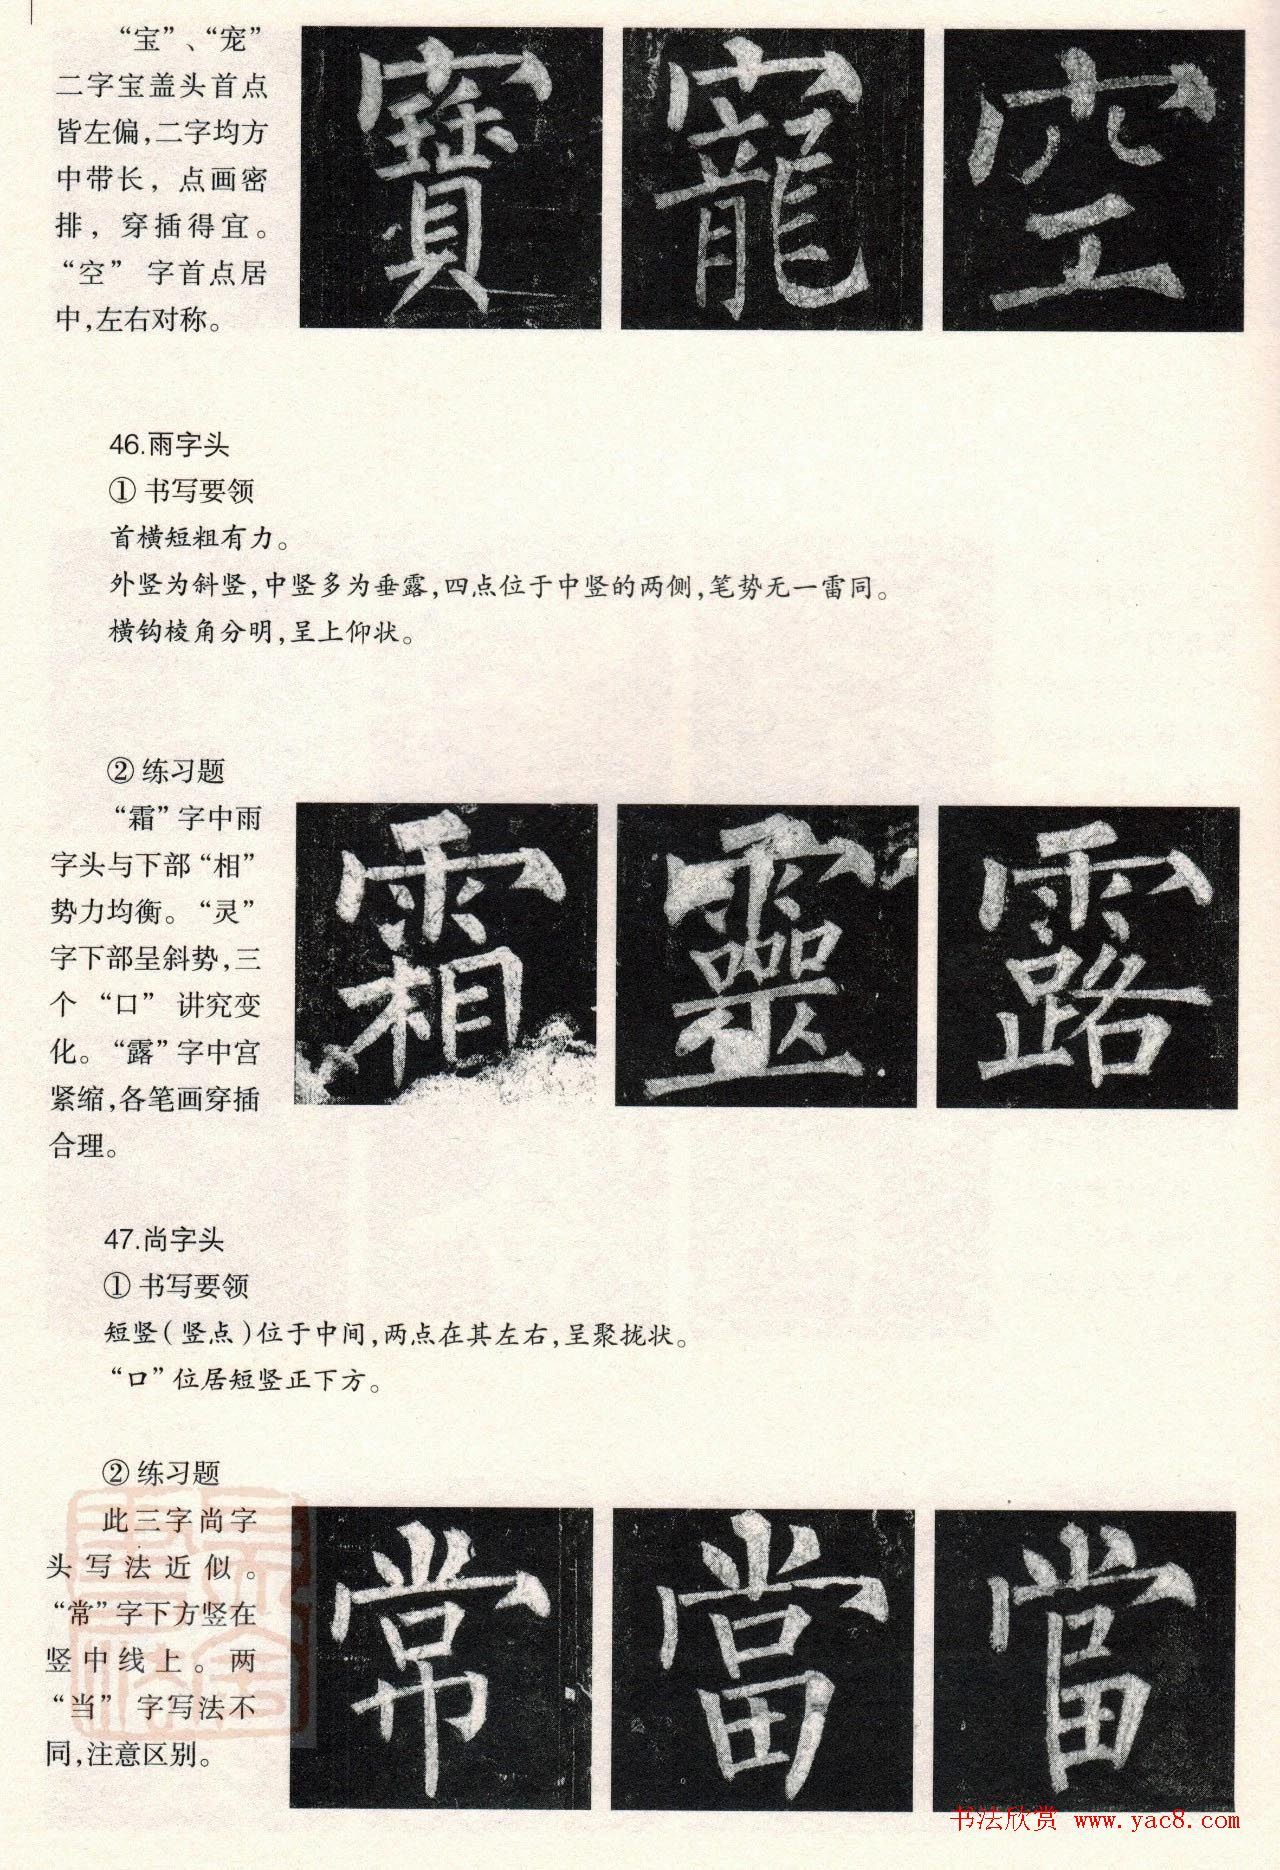 “宝”、“宠”
二字宝盖头首点
皆左偏,二字均方
中带长，点画密
排，穿插得宜。
“空” 字首点居
中,左右对称。
寶 寵 空
46.雨字头
① 书写要领
首横短粗有力。
外竖为斜竖,中竖多为垂露,四点位于中竖的两侧,笔势无一雷同。
横钩棱角分明,呈上仰状。
② 练习题
“霜”字中雨
字头与下部“相”
势力均衡。“灵”
字下部呈斜势,三
个 “口” 讲究变
化。“露”字中宫
紧缩,各笔画穿插
合理。
霜 靈 露
47.尚字头
① 书写要领
短竖(竖点)位于中间,两点在其左右,呈聚拢状。
“口”位居短竖正下方。
② 练习题
此三字尚字
头写法近似。
“常”字下方竖在
竖中线上。两
“当” 字写法不
同,注意区别。
常 當 當
书法欣赏 www.yac8.com